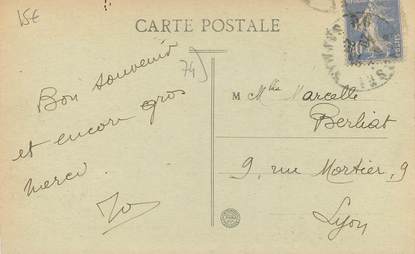 15€
CARTE POSTALE
74
Bon souvenir
et encore gros
merci
M Mlle Marcelle
Berliat
9, rue Mortier, 9
Lyon